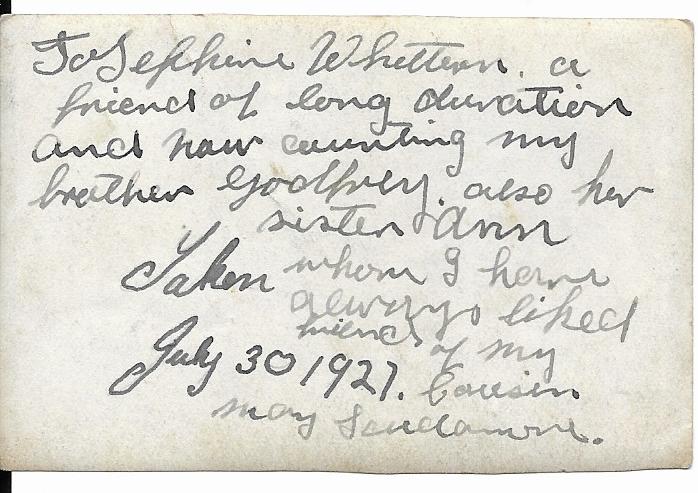 Josephine Whittern. a
friend of long duration
and now counting my
brother Godfrey. also her
sister Ann
Taken whom I have
always liked
friends of my
July 30 1927. Cousin
may